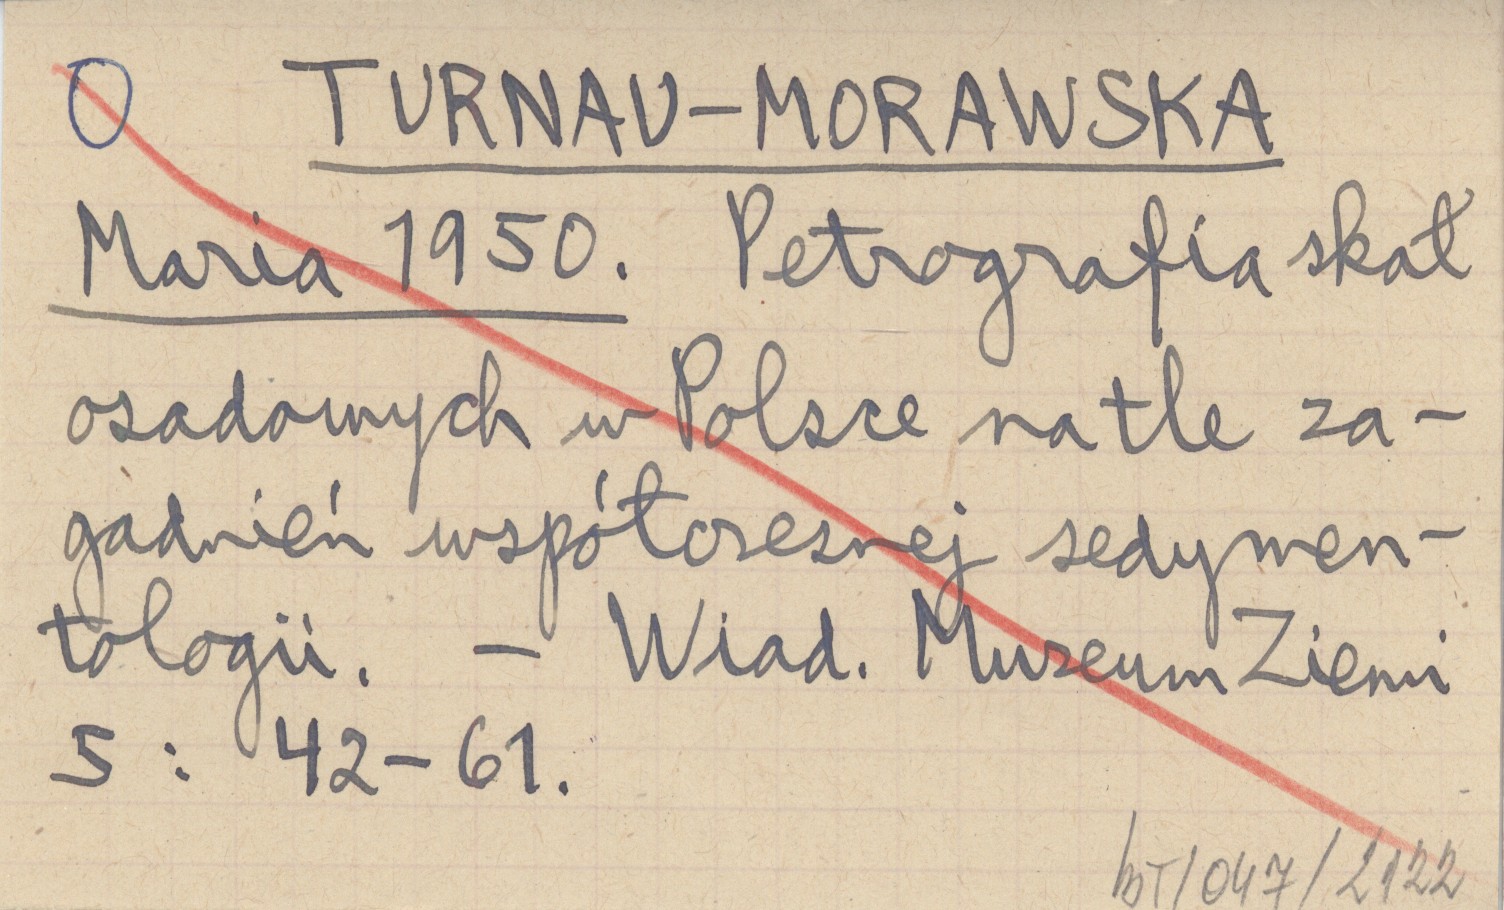 O TURNAU-MORAWSKA
Maria 1950. Petrografia skał
osadowych w Polsce na tle za-
gadnień współczesnej sedymen-
tologii. – Wiad. Muzeum Ziemi
5 : 42-61.
bT/047/2122